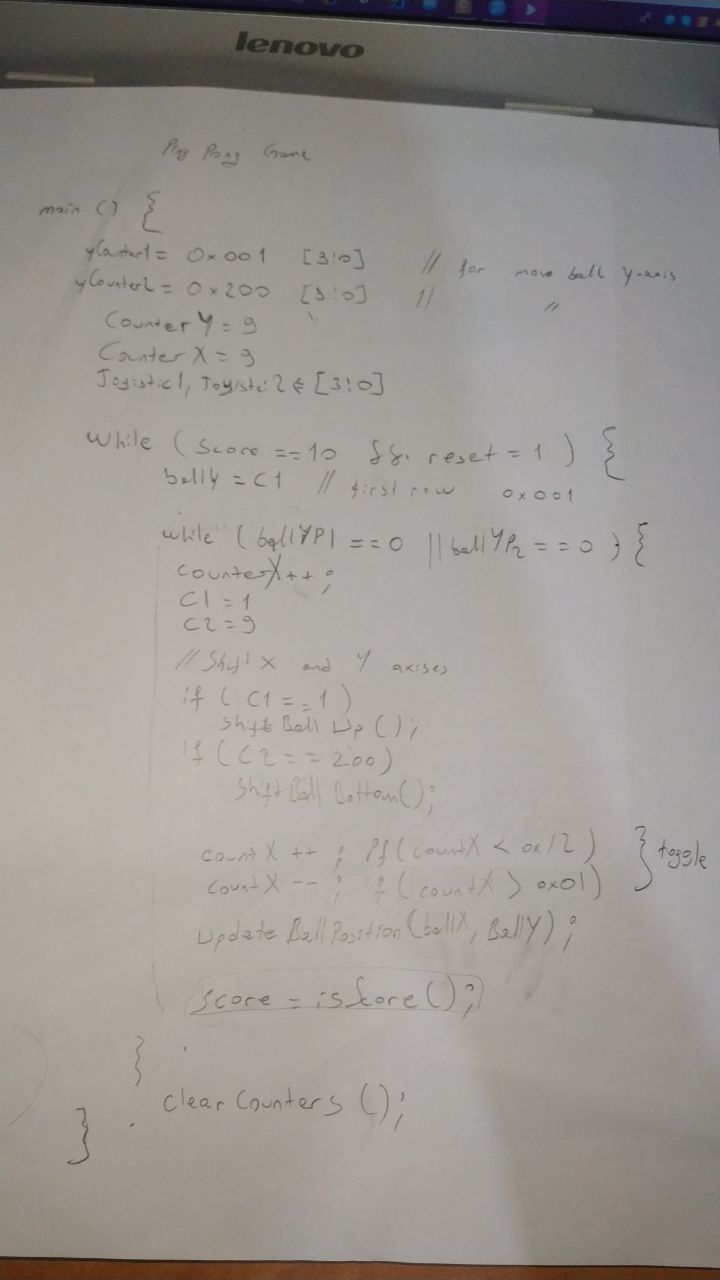 lenovo
Ping Pong Game
main () {
yCounter1 = 0x001 [3:0] // for move ball Y-axis
yCounter2 = 0x200 [3:0] // "
Counter Y = 9
Counter X = 9
[3:0]
while ( score == 10 && reset = 1 ) {
ballY = C1 // first row 0x001
while ( ballYP1 == 0 || ballYP2 == 0 ) {
counterX++ ;
C1 = 1
C2 = 9
// Shift X and Y axises
if ( C1 == 1 )
Shift Ball Up ();
if ( C2 == 200)
Shift Ball Bottom();
count X ++ ; if ( countX < 0x12 ) } toggle
count X -- ; if ( countX > 0x01 )
Update Ball Position ( ballX, BallY ) ;
score = isScore () ;
}
clear Counters ();
}